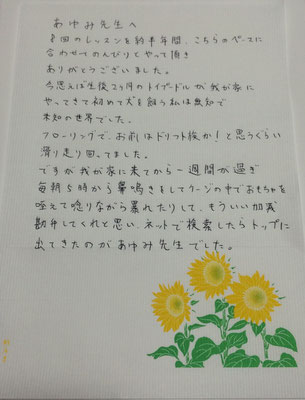 あゆみ先生へ
8回のレッスンを約半年間、こちらのペースに
合わせてのんびりとやって頂き
ありがとうございました。
今思えば生後2ヶ月のトイプードルが我が家に
やってきて初めて犬を飼う私は無知で
未知の世界でした。
フローリングで、お前はドリフト族か!と思うぐらい
滑り走り回ってました。
ですが我が家に来てから一週間が過ぎ
毎朝5時から鼻鳴きをしてケージの中でおもちゃを
咥えて唸りながら暴れたりして、もういい加減
勘弁してくれと思い、ネットで検索したらトップに
出てきたのがあゆみ先生でした。